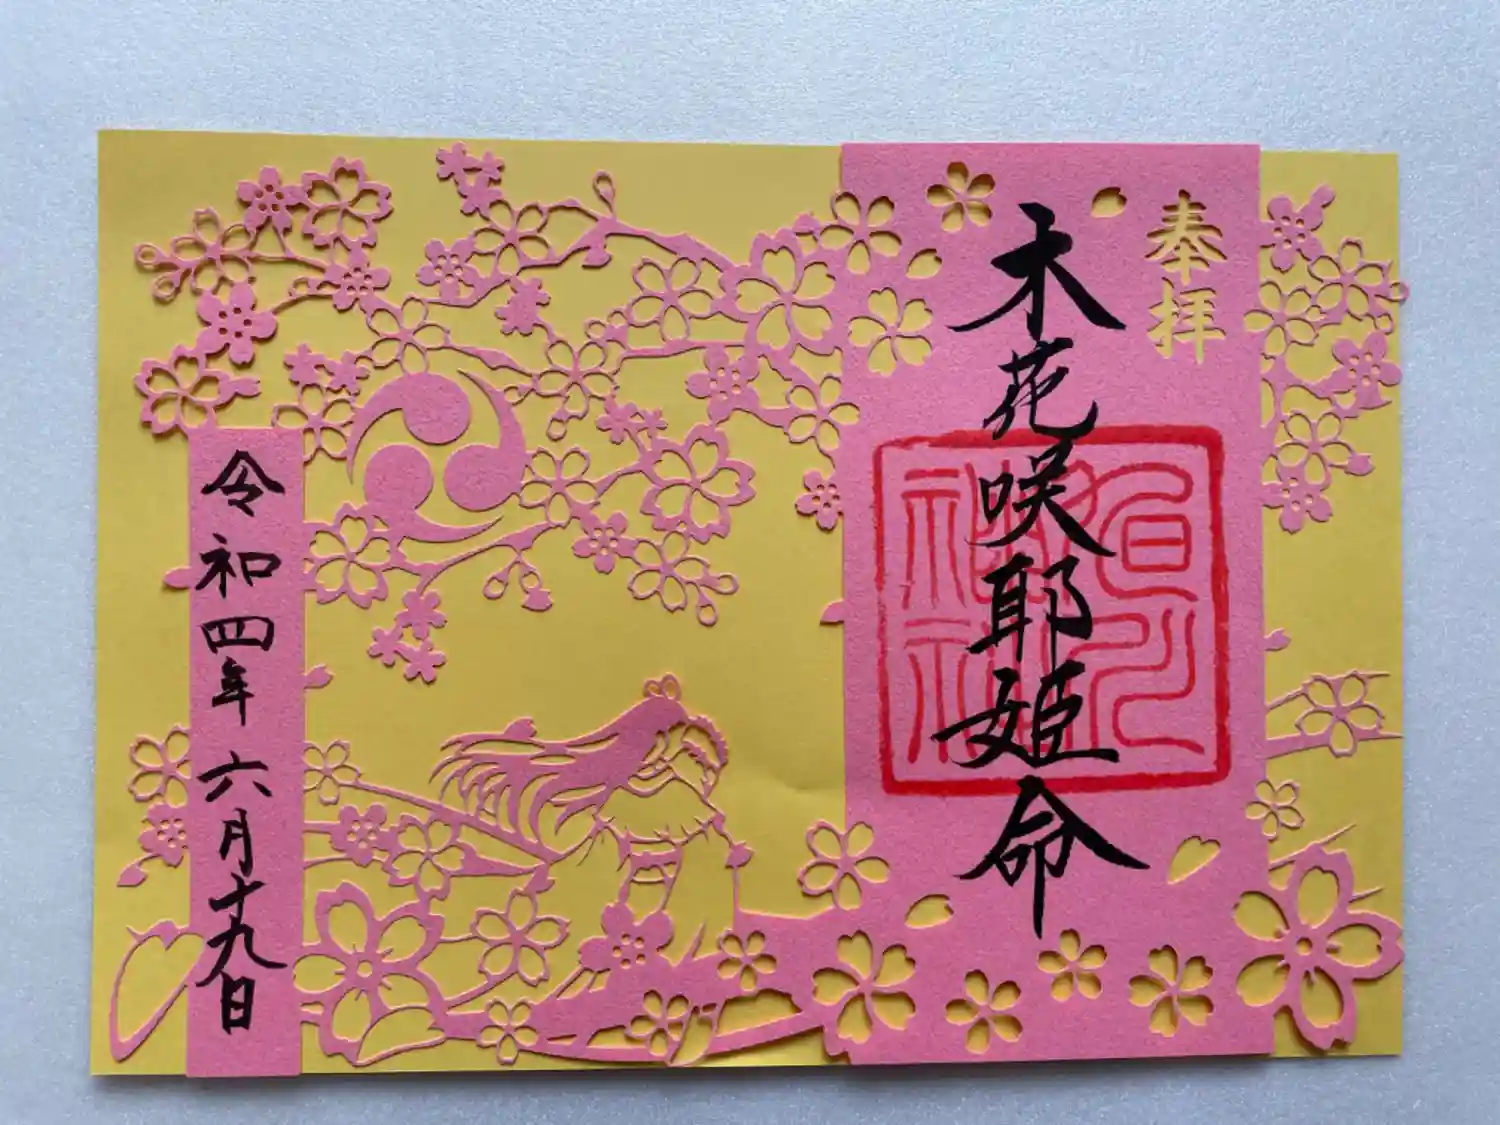 奉拝
木花咲耶姫命
令和四年六月十九日